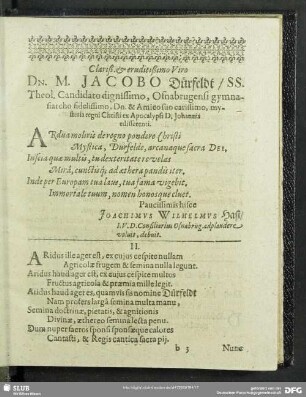 Clariss. & eruditissimo Viro
DN. M. JACOBO Dürfeldt / SS.
Theol. Candidato dignissimo, Osnabrugensi gymna-
siarcho fidelissimo, Dn. & Amico suo carissimo, my-
steria regni Christi ex Apocalypsi D. Johannis
edisserenti.
ARdua moliris de regno pondere Christi
Mystica, Durfelde, arcanaque sacra DEI,
Inscia quæ multis, tu dexteritate revelas
Mirâ, cunctisq; ad æthera pandis iter.
Inde per Europam tua laus, tua fama vigebit,
Immortale tuum, nomen honosque cluet.
Paucissimis hisce
JOACHIMUS WILHELMUS Hast/
I.V.D. Consiliarius Osnabrug. adplaudere
voluit, debuit.
II.
ARidus ille ager est, ex cujus cespite nullam
Agricolæ frugem & semina nulla legunt.
Aridus haud ager est, ex cujus cespite multos
Fructus agricola & præmia mille legit.
Aridus haud ager es, quamvis sis nomine Dürfeldt
Nam profers largâ semina multa manu,
Semina doctrinæ, pietatis, & agnitionis
Divinæ, æthereo semina lecta penu.
Dum nuper sacros sponsi sponsæque calores
Cantasti, & Regis cantica sacra pij.
b 3 Nunc
SLUB
DFG